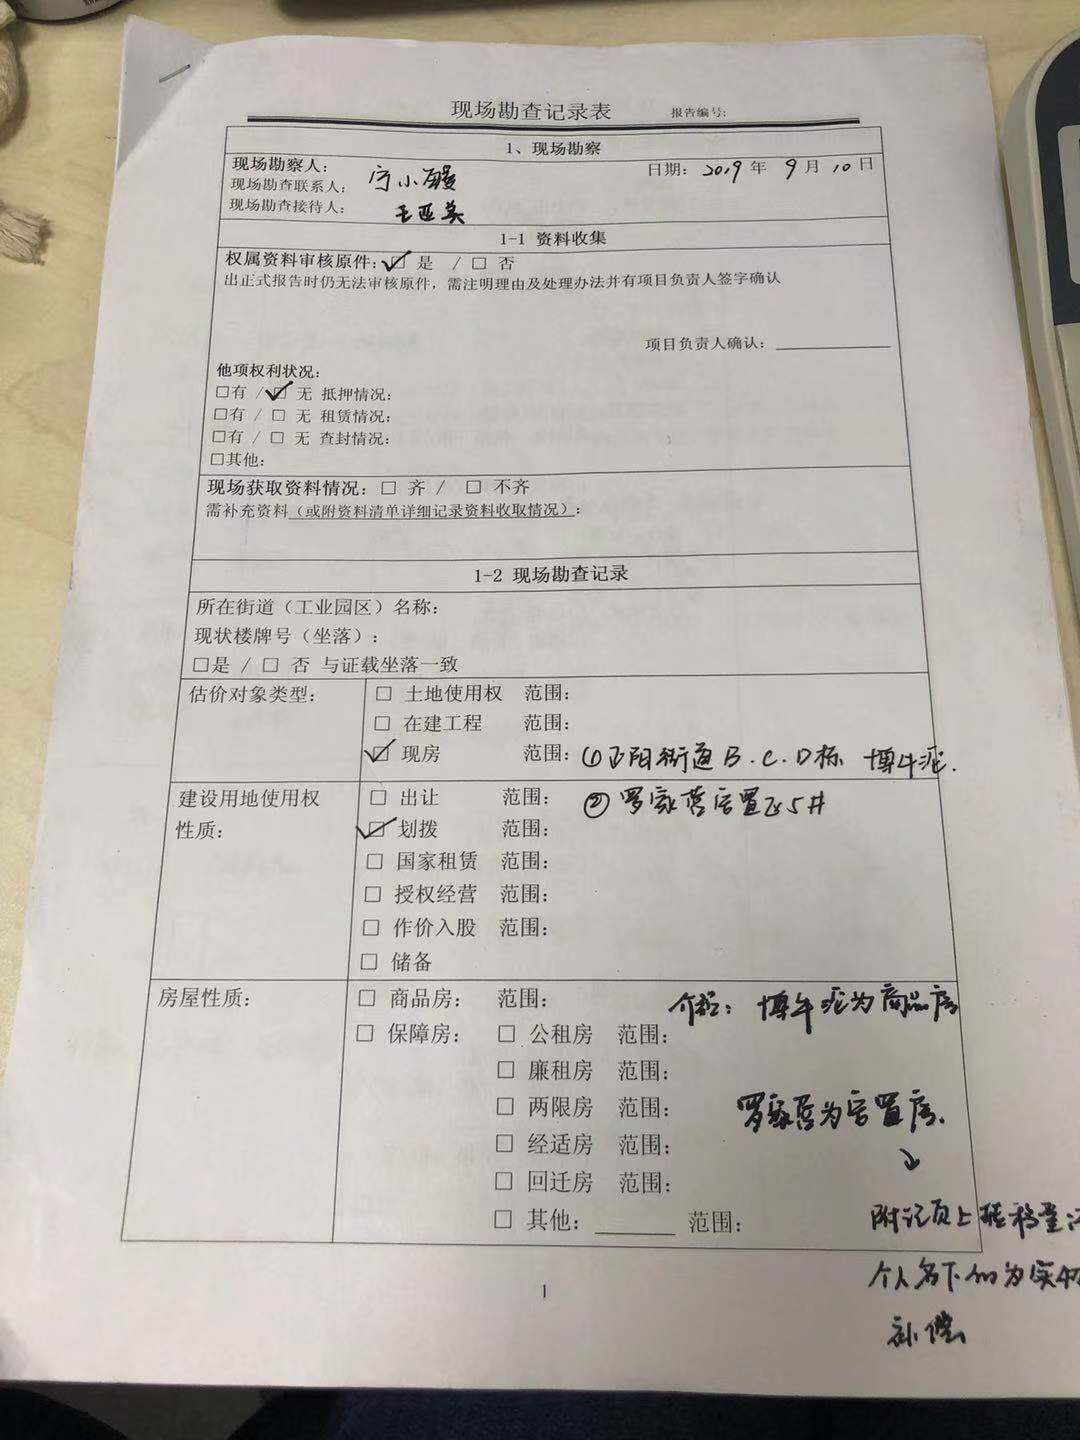 现场勘查记录表 报告编号:
1、现场勘察
现场勘察人: 日期: 2019 年 9 月 10 日
现场勘查联系人: 宁小
现场勘查接待人: 王亚英
1-1 资料收集
权属资料审核原件: ☑ 是 / □ 否
出正式报告时仍无法审核原件，需注明理由及处理办法并有项目负责人签字确认
项目负责人确认:
他项权利状况:
□有 / ☑ 无 抵押情况:
□有 / □ 无 租赁情况:
□有 / □ 无 查封情况:
□其他:
现场获取资料情况: □ 齐 / □ 不齐
需补充资料（或附资料清单详细记录资料收取情况）:
1-2 现场勘查记录
所在街道（工业园区）名称:
现状楼牌号（坐落）:
□是 / □ 否 与证载坐落一致
估价对象类型: □ 土地使用权 范围:
□ 在建工程 范围:
☑ 现房 范围: ① 阳街道 B.C.D标 博牛
建设用地使用权 □ 出让 范围: ② 罗家营安置区5#
性质: ☑ 划拨 范围:
□ 国家租赁 范围:
□ 授权经营 范围:
□ 作价入股 范围:
□ 储备
房屋性质: □ 商品房: 范围: 介绍: 博牛 为商品房
□ 保障房: □ 公租房 范围:
□ 廉租房 范围:
□ 两限房 范围: 罗家营为安置房.
□ 经适房 范围:
□ 回迁房 范围:
□ 其他: 范围: 附记页上转移至
个人名下的为实物
补偿
1